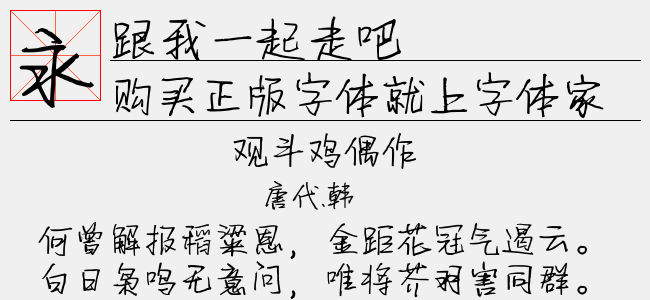 永
跟我一起走吧
购买正版字体就上字体家
观斗鸡偶作
唐代.韩
何曾解报稻粱恩，金距花冠气遏云。
白日枭鸣无意问，唯将芥羽害同群。